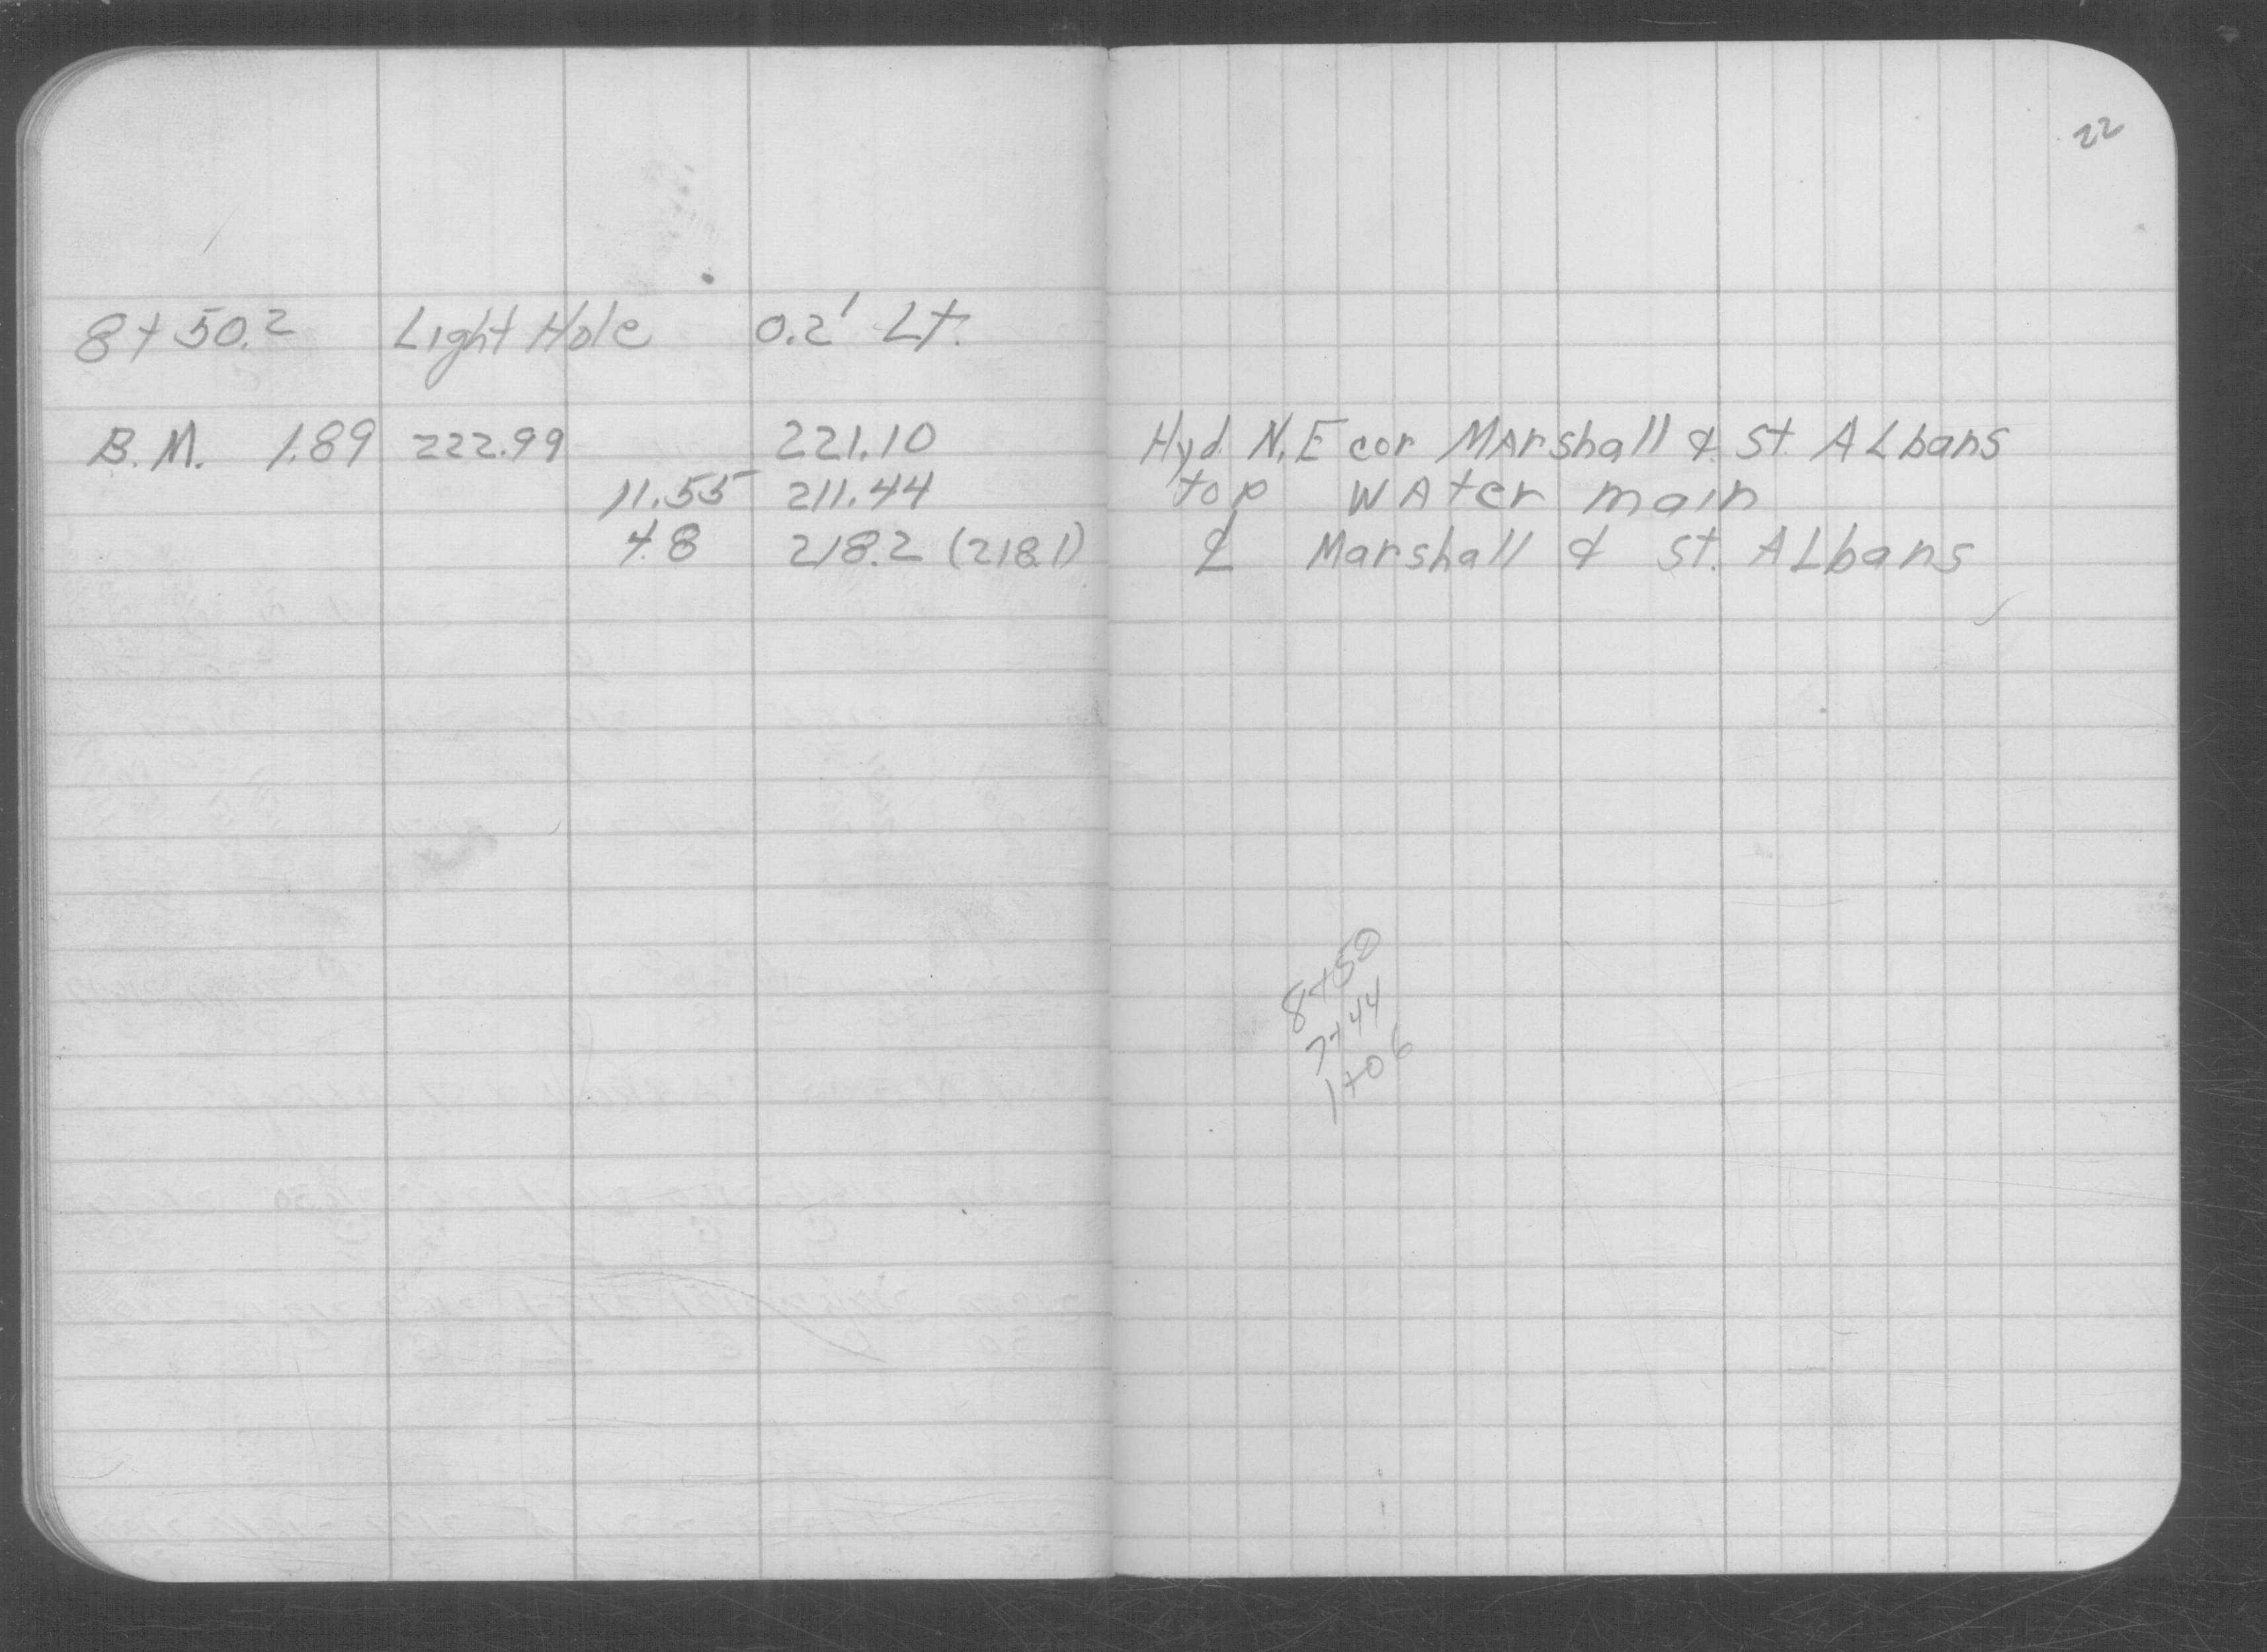 22
8+50.2 Light Hole 0.2' Lt.
B.M. 1.89 222.99 221.10 Hyd. N.E cor Marshall & St. Albans
11.55 211.44 top water main
4.8 218.2 (218.1) ℄ Marshall & St. Albans
8+50
7+44
1+06